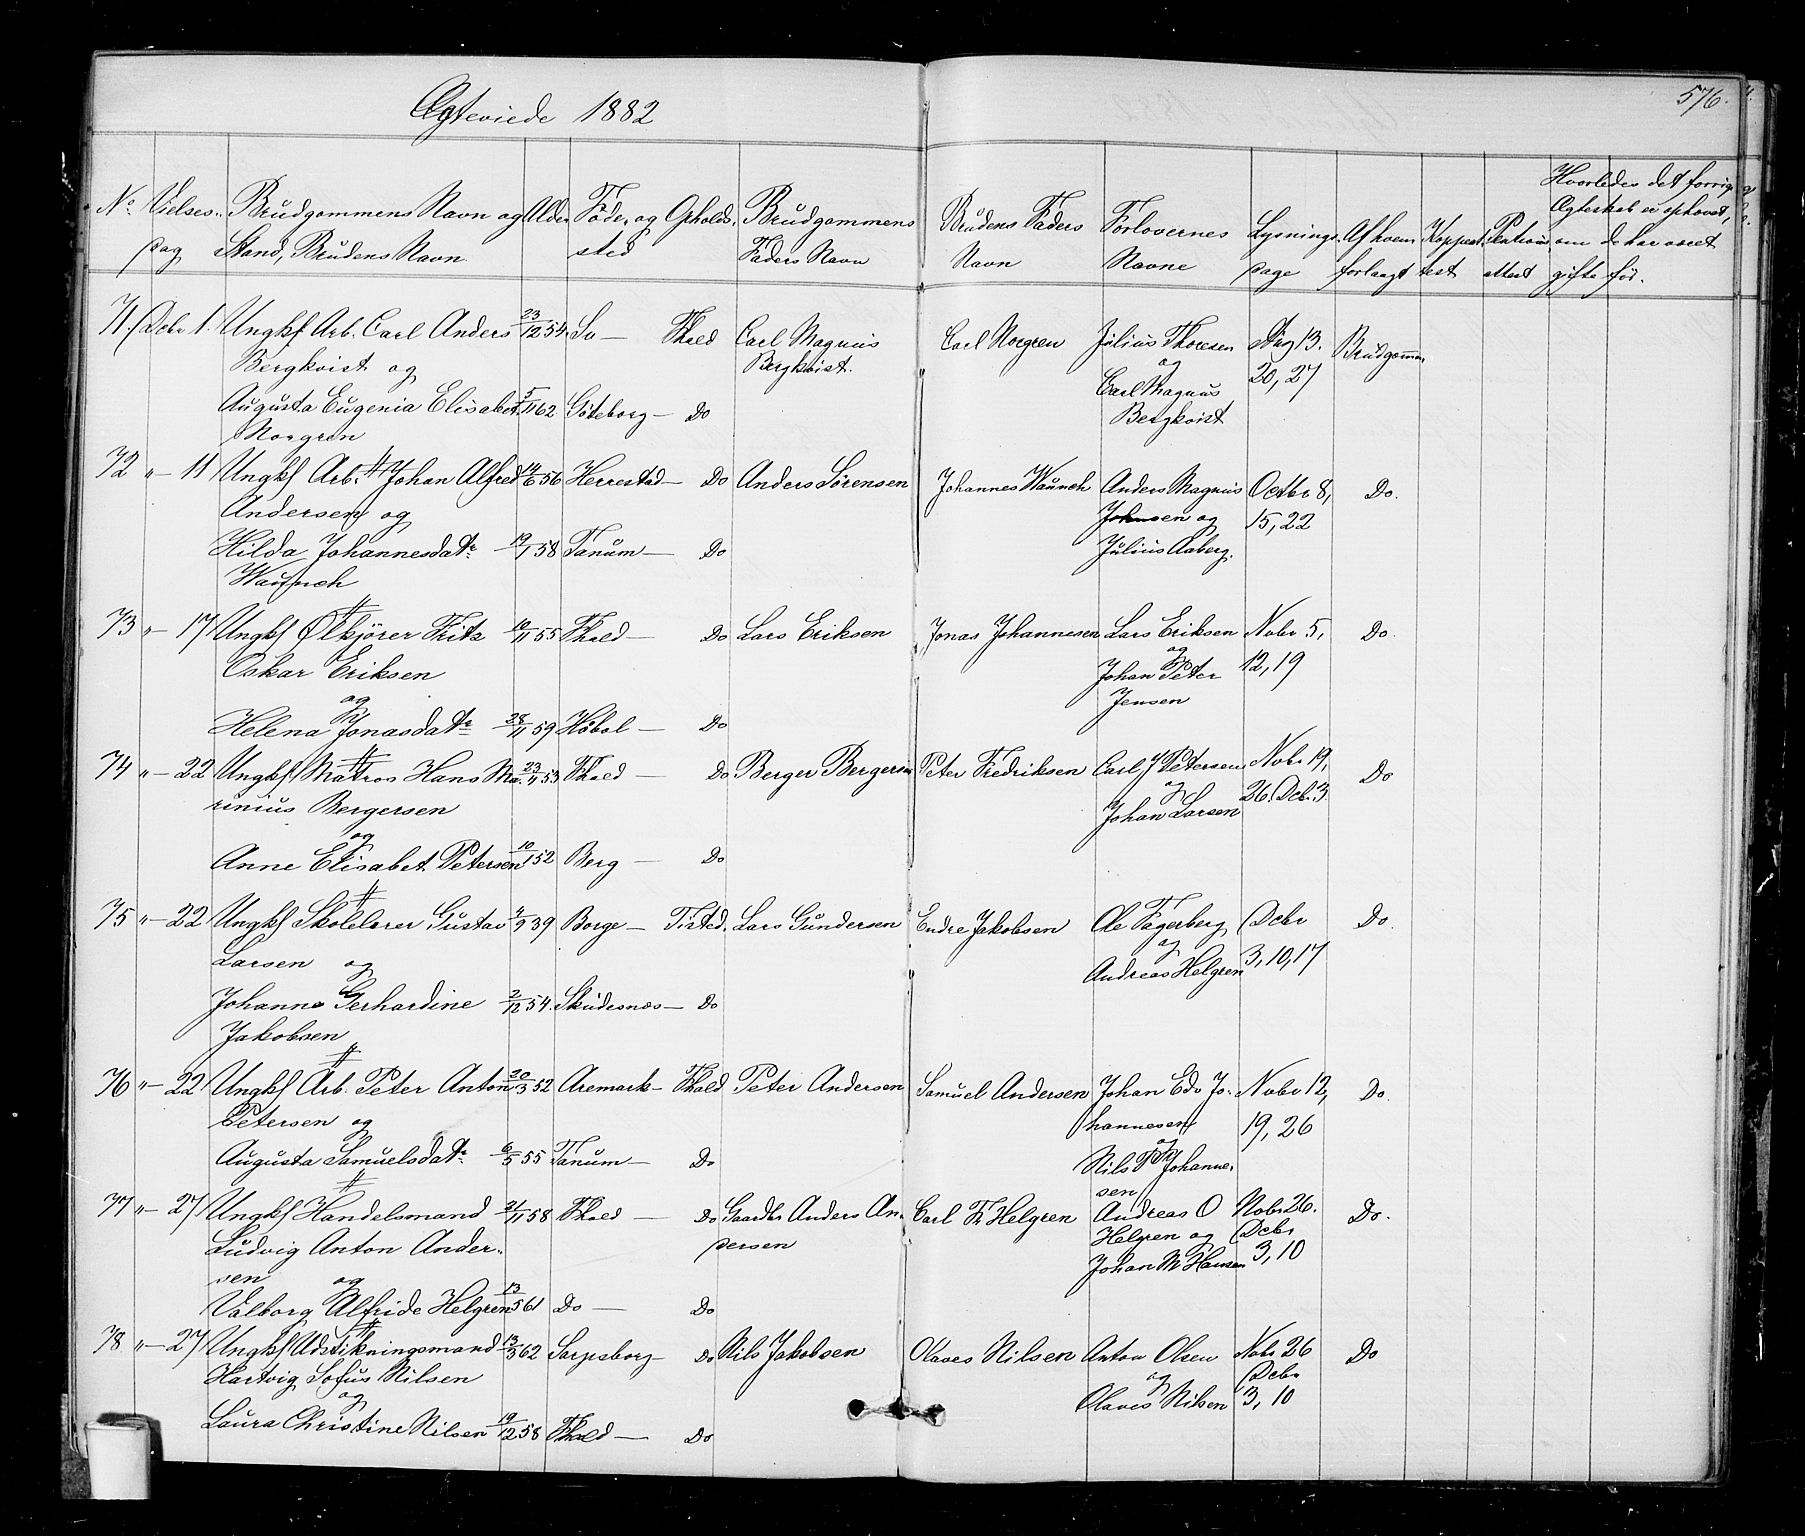 Ægteviede 1882
576.
No Vielses- Dag
Brudgommens Navn og Stand, Brudens Navn
Alder
Føde- og Opholdssted
Brudgommens Faders Navn
Brudens Faders Navn
Forlovernes Navne
Lysnings Dage
Af hvem forlangt
Koppeattest
attest
Hvorledes det forrige Ægteskab er ophævet, om de har været gifte før.
71. Dcbr 1. Ungkf Arb. Carl Anders 23/12 54. Sv — Fhald Carl Magnus Carl Norgren Julius Thoresen Aug 13. Brudgommen
Bergkvist og Bergkvist. og 20, 27
Augusta Eugenia Elisabet 5/11 62 Göteborg — Do Carl Magnus
Norgren Bergkvist
72 " — 11 Ungkf Arb. Johan Alfred 14/6 56 Herrestad — Do Anders Sørensen Johannes Waunch Anders Magnus Octbr 8, Do.
Andersen og Johnsen og 15, 22
Hilda Johannesdatr 19/1 58 Tanum — Do Julius Aaberg.
Waunch
73 " — 17 Ungkf Ølkjører Fritz 12/11 55 Fhald — Do Lars Eriksen Jonas Johannesen Lars Eriksen Nobr 5, Do.
Oskar Eriksen og 12, 19
og Johan Peter
Helena Jonasdatr 28/11 59 Høbøl — Do Jensen
74 " — 22 Ungkf Matros Hans Ma- 23/11 53 Fhald — Do Berger Bergersen Peter Fredriksen Carl J Petersen Nobr 19, Do
rinius Bergersen og 26. Dcb. 3
og Johan Larsen
Anne Elisabet Petersen 10/1 52 Berg — Do
75 " — 22 Ungkf Skolelærer Gustav 4/9 39 Borge — Tisted. Lars Gundersen Endre Jakobsen Ole Fagerberg Dcbr Do.
Larsen og og 3, 10, 17
Johanne Gerhardine 2/12 54. Skudesnæs — Do Andreas Helgren
Jakobsen
76 " — 22 Ungkf Arb. Peter Anton 20/3 52 Aremark — Fhald Peter Andersen Samuel Andersen Johan Edv Jo- Nobr 12, Do.
Petersen og hannesen 19, 26
og
Augusta Samuelsdatr 6/5 55 Tanum — Do Nils Johanne-
sen
77 " — 27 Ungkf Handelsmand 21/11 58 Fhald — Do Gaardbr Anders An- Carl Fr Helgren Andreas O Nobr 26. Do.
Ludvig Anton Ander- dersen Helgren og Dcbr
sen og Johan M Hansen 3, 10
Valborg Alfride Helgren 13/5 61 Do — Do
78 " — 27 Ungkf Udstikningsmand 13/3 62 Sarpsborg — Do Nils Jakobsen Olaves Nilsen Anton Olsen Nobr 26 Do
Hartvig Sofus Nilsen og Dcbr
og Olaves Nilsen 3, 10
Laura Christine Nilsen 19/12 58 Fhald — Do